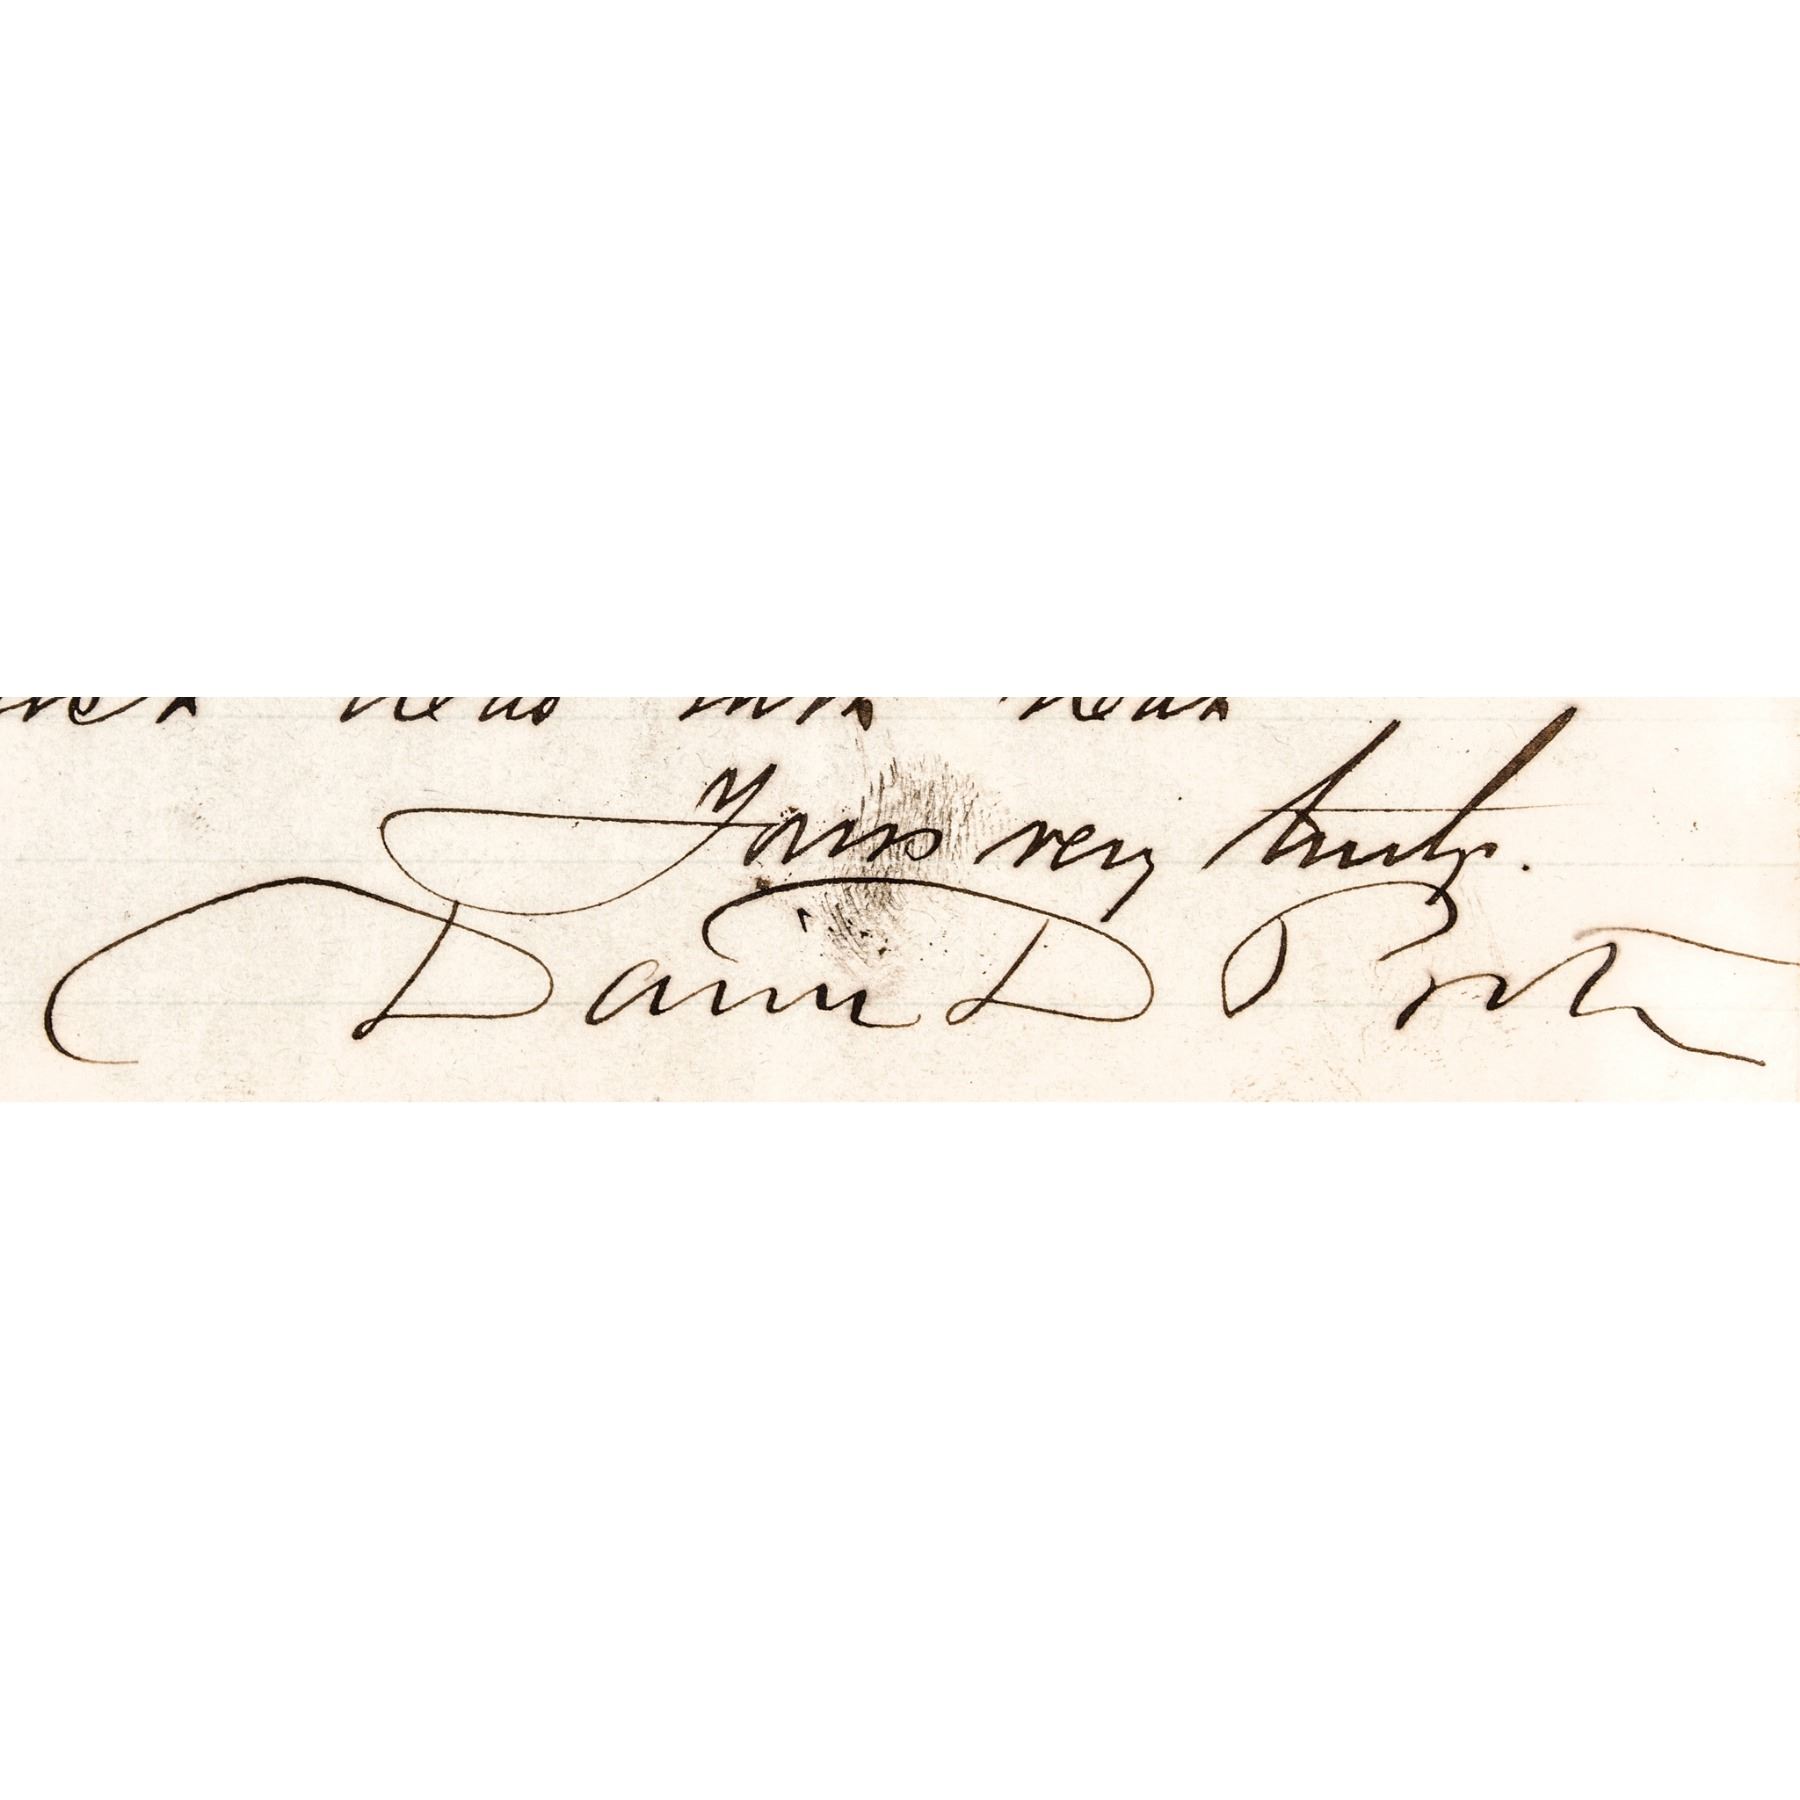 Yours very truly.
David D Porter